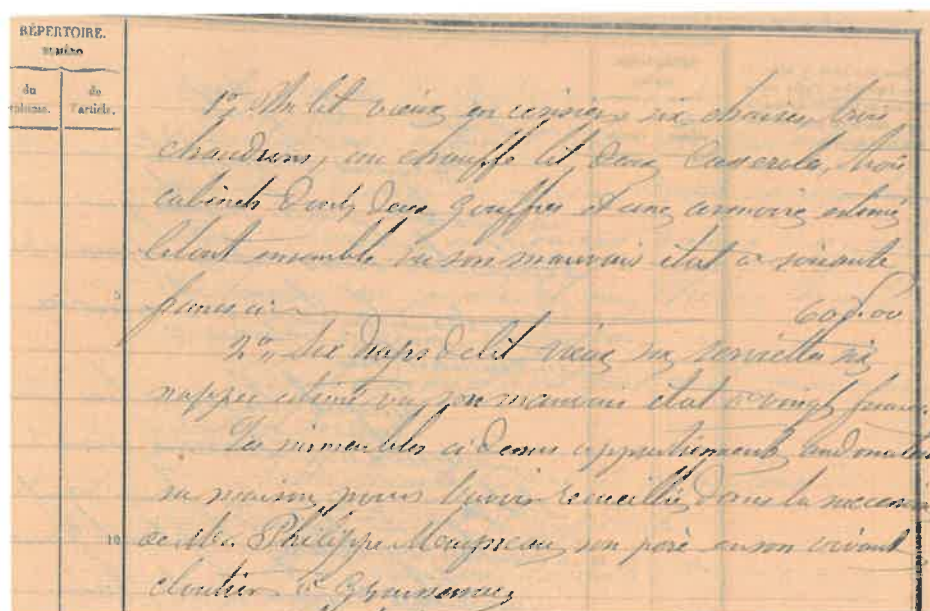 RÉPERTOIRE.
NUMÉRO
du volume.
de l'article.
1° Un lit vieux en cerisier, six chaises, trois
chaudrons, un chauffe lit deux casseroles, trois
cabinets dont deux gouffres et une armoire estimé
le tout ensemble vu son mauvais état à soixante
5
francs ci 60f.00
2° Six draps de lit vieux six serviettes six
nappes estimé vu son mauvais état à vingt francs.
Les immeubles ci dessus appartiennent au donateur
sa maison pour l'avoir recueillie dans la succession
10
de Mr. Philippe son père en son vivant
cloutier à